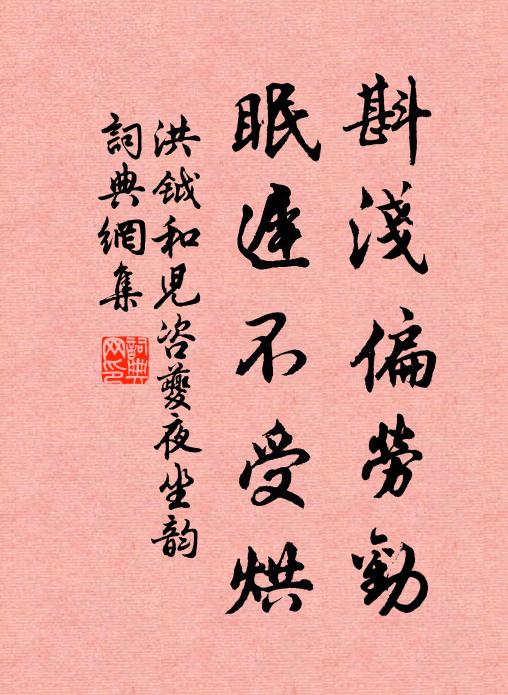 斟淺偏勞勸
眠遲不受烘
洪鉞和兒咨夔夜坐韵
詞典網集
詞典網印